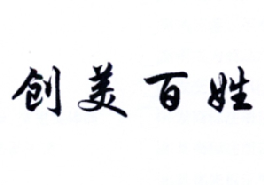 创美百姓